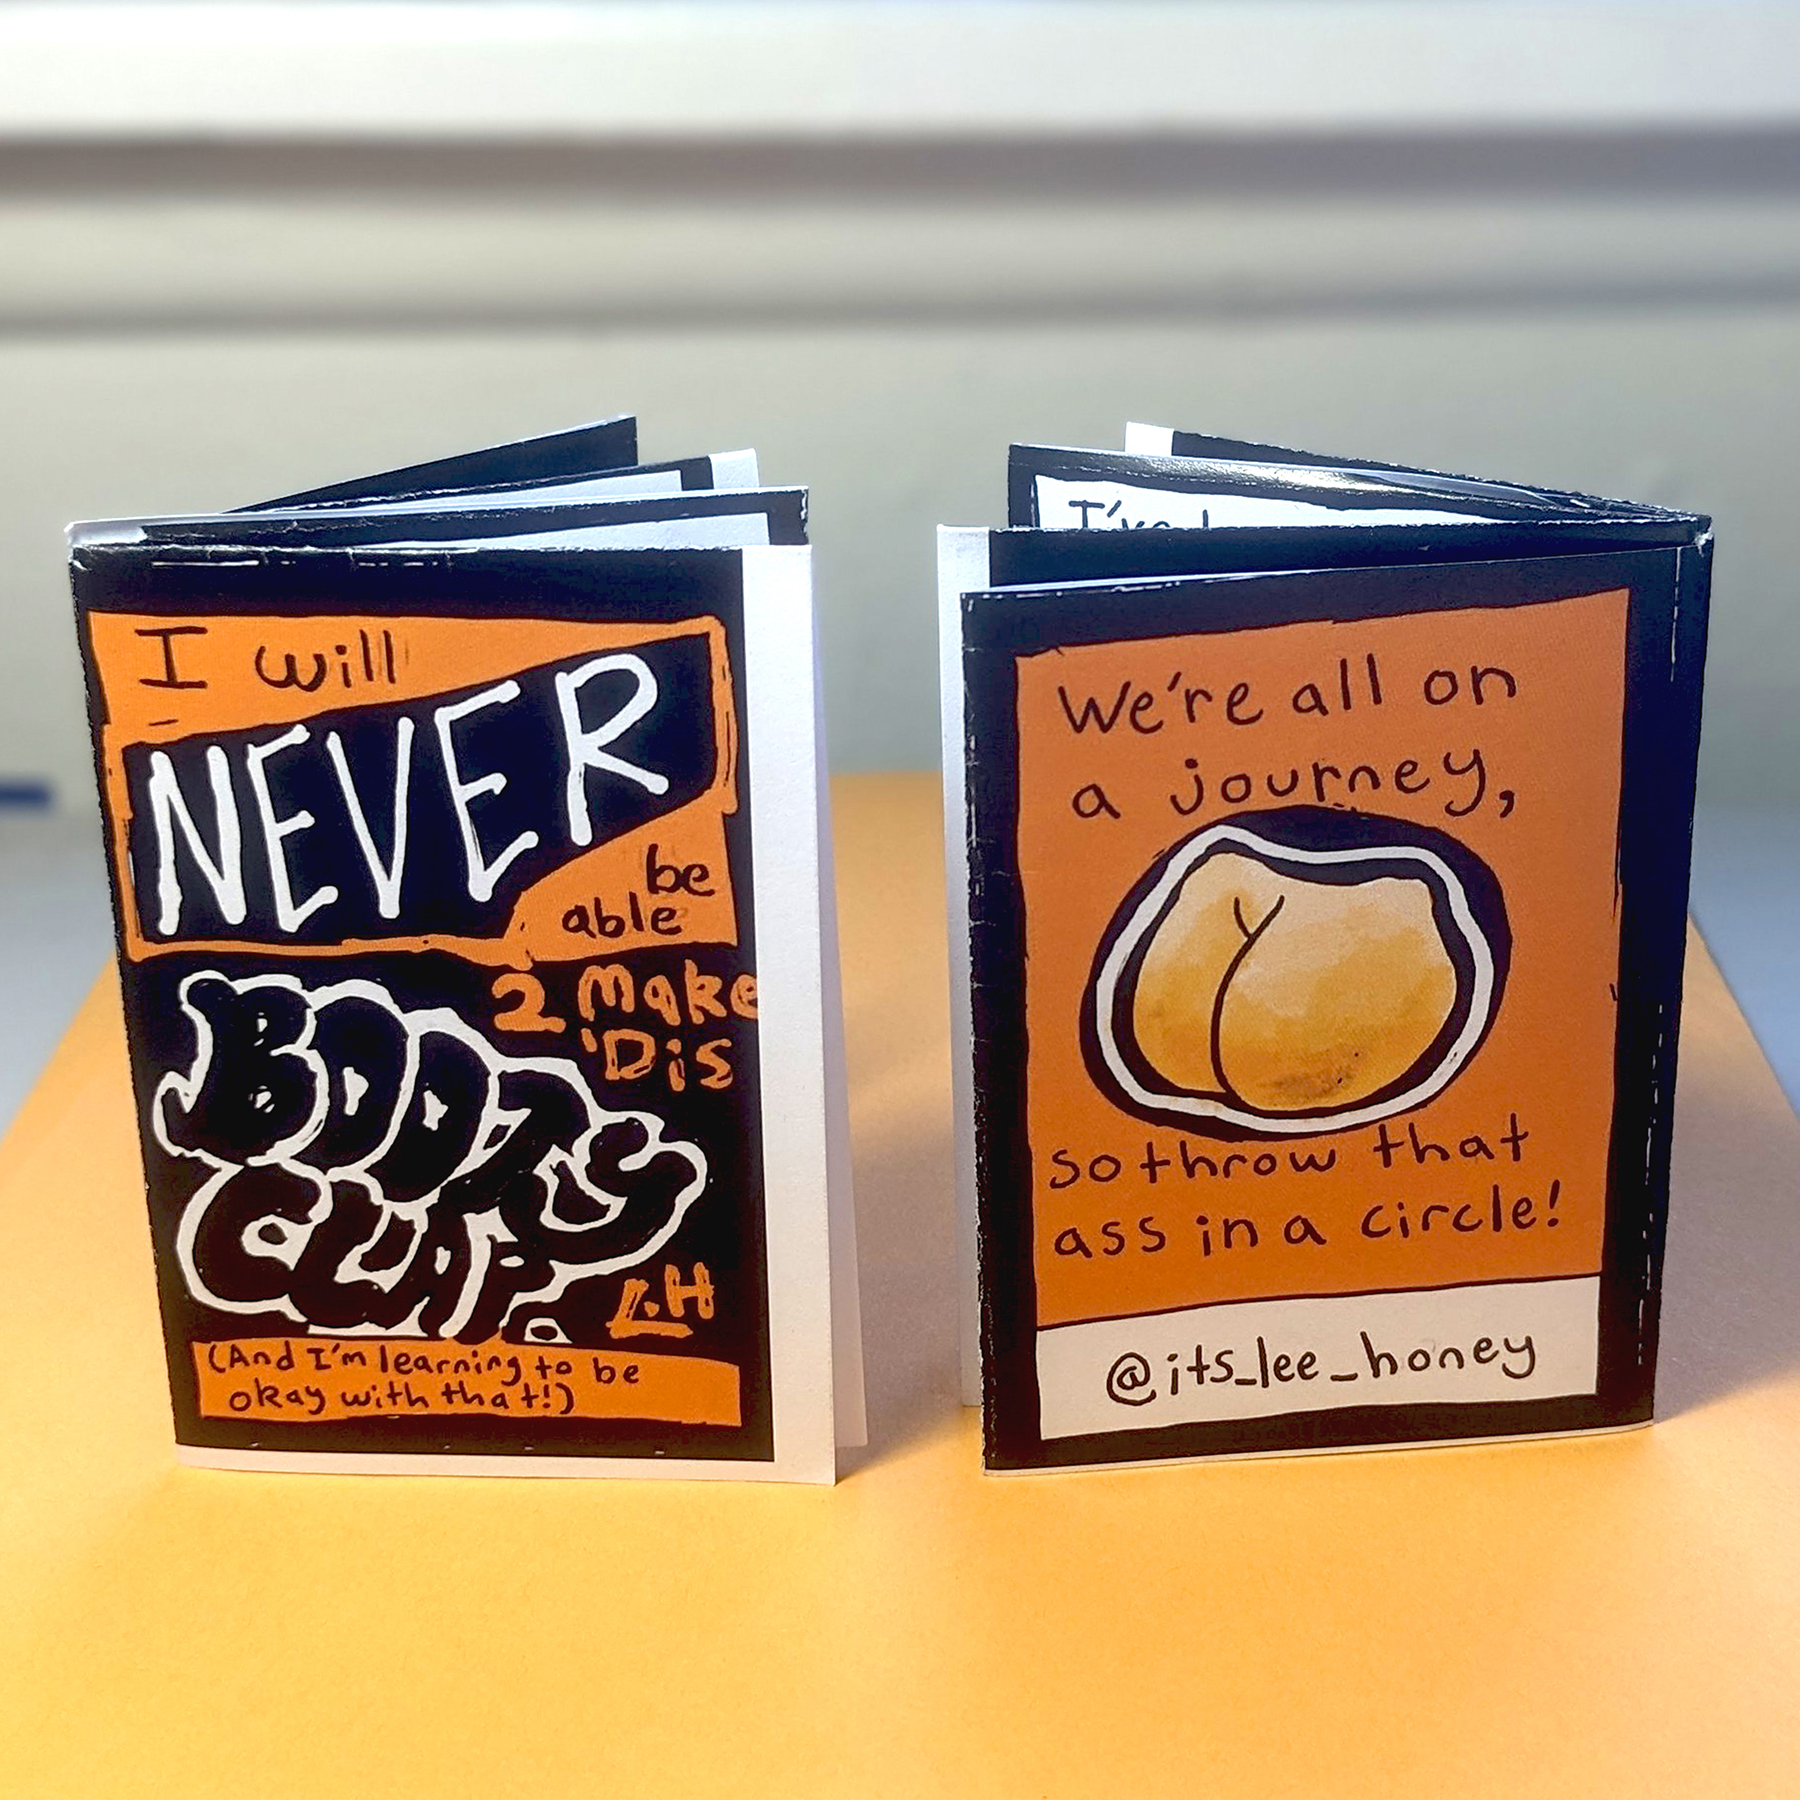 I will
NEVER
be
able
2 Make
'Dis
BOOTY
CLAP.
L.H
(And I'm learning to be
okay with that!)
I've
We're all on
a journey,
so throw that
ass in a circle!
@its_lee_honey